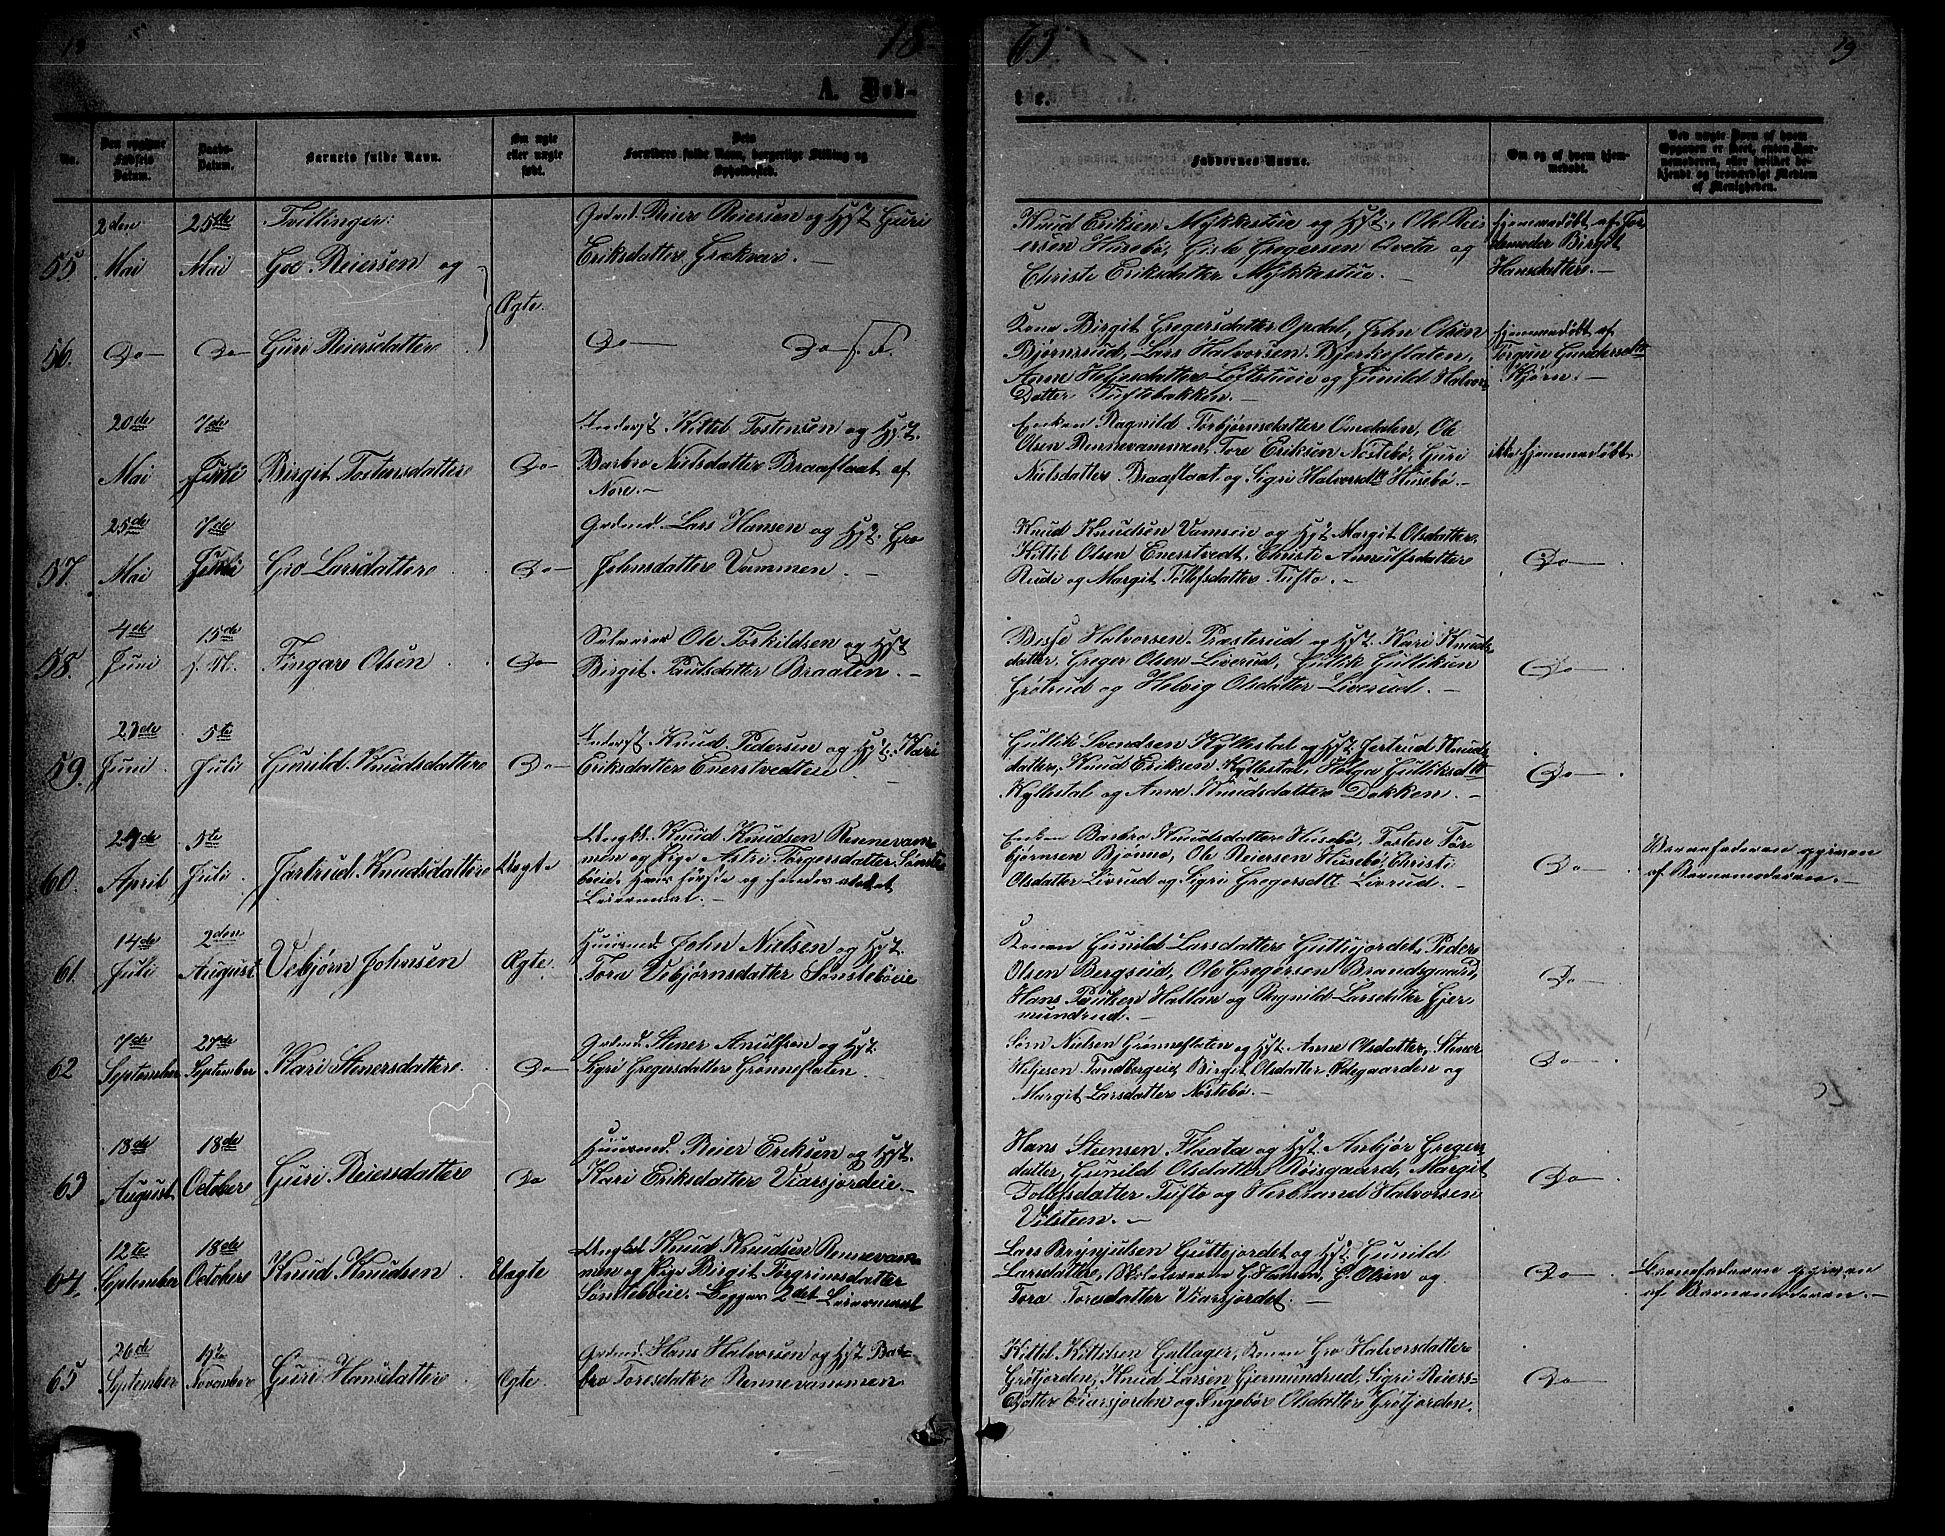 18 63. 19
A. Døb- te.
No.
Den opgivne Fødsels Datum.
Daabs-Datum.
Barnets fulde Navn.
Om ægte eller uægte født.
Dets Forældres fulde Navn, borgerlige Stilling og Opholdssted.
Faddernes Navne.
Om og af hvem hjemmedøbt.
Ved uægte Børn af hvem Opgaven er skeet, enten Barnemoderen, eller hvilket bekjendt og troværdigt Medlem af Menigheden.
55.
2den
Mai
25de
Mai
Tvillinger:
Gro Reiersen og
Ægte.
Gadmd. Reier Reiersen og Hst. Guri
Eriksdatter Grækvar. —
Knud Eriksen Mykkestue og Hst., Ole Rei
ersen Husebø, Gisle Gregersen Aveta og
Christi Eriksdatter Mykkestue. —
hjemmedøbt af Jor
demoder Birgit
Hansdatter. —
56.
Do —
Do —
Guri Reiersdatter
Do — Do
Kone Birgit Gregersdatter Opdal, John Olsen
Bjørnsrud, Lars Halvorsen Bjerkeflaten,
Anne Heljesdatter Loftstueie og Gunild Halvors
Datter Tuftebakken. —
hjemmedøbt af
Torgun Gundersdtt
Kjørn. —
20de
Mai
7de
Juni
Birgit Tostensdatter
Do —
Inderst Kittil Tostensen og Hst.
Barbro Nielsdatter Braaflaat af
Nore. —
Enken Ragnild Torbjørnsdatter Omdalen, Ole
Olsen Rennevammen, Tore Eriksen Nøstebø, Guri
Nielsdatter Braaflaat og Sigri Halvorsdtt Husebø. —
ikke hjemmedøbt
57.
25de
Mai
7de
Juni
Gro Larsdatter
Do —
Gadmd. Lars Hansen og Hst. Gro
Johnsdatter Vammen. —
Knud Knudsen Vamseie og Hst Margit Olsdatter,
Kittil Olsen Enerstvedt, Christi Anulfsdatter
Rude og Margit Tollefsdatter Tufto. —
Do —
58.
4de
Juni
15de
s. M.
Fingar Olsen
Do —
Selveier Ole Torkildsen og Hst
Birgit Paulsdatter Braaten. —
Besse Halvorsen Præsterud og Hst. Kari Knuds
datter, Greger Olsen Liverud, Gullik Gulliksen
Grøtrud og Helvig Olsdatter Liverud. —
Do —
59.
23de
Juni
5te
Juli
Gunild Knudsdatter
Do —
Inderst Knud Pedersen og Hst. Kari
Eriksdatter Enerstvedteie —
Gullik Svendsen Kyllestal og Hst Jertrud Knuds
datter, Knud Eriksen Kyllestal, Helga Gulliksdtt
Kyllestal og Anne Knudsdatter Dokken. —
Do —
60.
29de
April
5te
Juli
Jørtrud Knudsdatter
Uægte
Ungk. Knud Knudsen Rennevam
men og Pige Astri Torgersdatter Sønste
bøeie. Hans første og hendes andet
Leiermaal. —
Enken Barbro Knudsdatter Husebø, Tosten Tor
bjørnsen Bjønnø, Ole Reiersen Husebø, Christi
Olsdatter Livrud og Sigri Gregersdtt Livrud. —
Do —
Barnefaderen opgiven
af Barnemoderen. —
61.
14de
Juli
2den
August
Vebjørn Johnsen
Ægte.
Huusmd. John Nielsen og Hst.
Tora Vebjørnsdatter Sønstebøeie
Konen Gunild Larsdatter Guttujordet, Peder
Olsen Bergseid, Ole Gregersen Brandsgaard,
Hans Paulsen Hallan og Ragnild Larsdatter Gjer
mundrud. —
Do —
62
7de
September
27de
September
Kari Stenersdatter.
Do —
Gadmd. Stener Anulfsen og Hst.
Sigri Gregersdatter Grønneflaten.
Søm Nielsen Grønneflaten og Hst. Anne Olsdatter, Stener
Heljesen Tandbergeie, Birgit Olsdatter Ødegaarden og
Margit Larsdatter Nøstebø. —
Do —
63
18de
August
18de
October
Guri Reiersdatter
Do
Huusmd. Reier Eriksen og Hst.
Kari Eriksdatter Viarsjordeie. —
Hans Steensen Flaata og Hst. Ambjør Gregers
datter, Gunild Olsdatter Røisgaard, Margit
Tollefsdatter Tufto og Herbrand Halvorsen
Vilsteen. —
Do —
64.
12te
September
18de
October
Knud Knudsen
Uægte
Ungkl Knud Knudsen Rennevam
men og Pige Birgit Torgrimsdatter
Sønstebøeie. Begges 2det Leiermaal
Lars Brynjulsen Guttejordet og Hst. Gunild
Larsdatter, Skolelærer G. Hansen, G. Olsen og
Tora Toresdatter Viarsjordet. —
Do —
Barnefaderen opgiven
af Barnemoderen. —
65
26de
September
1ste
November
Guri Hansdatter
Ægte
Gadmd. Hans Halvorsen og Hst Bar-
bro Toresdatter Rennevammen
Kittil Kittilsen Gallager, Konen Gro Halvorsdatter
Grøtjorden, Knud Larsen Gjermundrud, Sigri Reiers-
Datter Viarsjorden og Ingebør Olsdatter Grøtjorden.
Do —